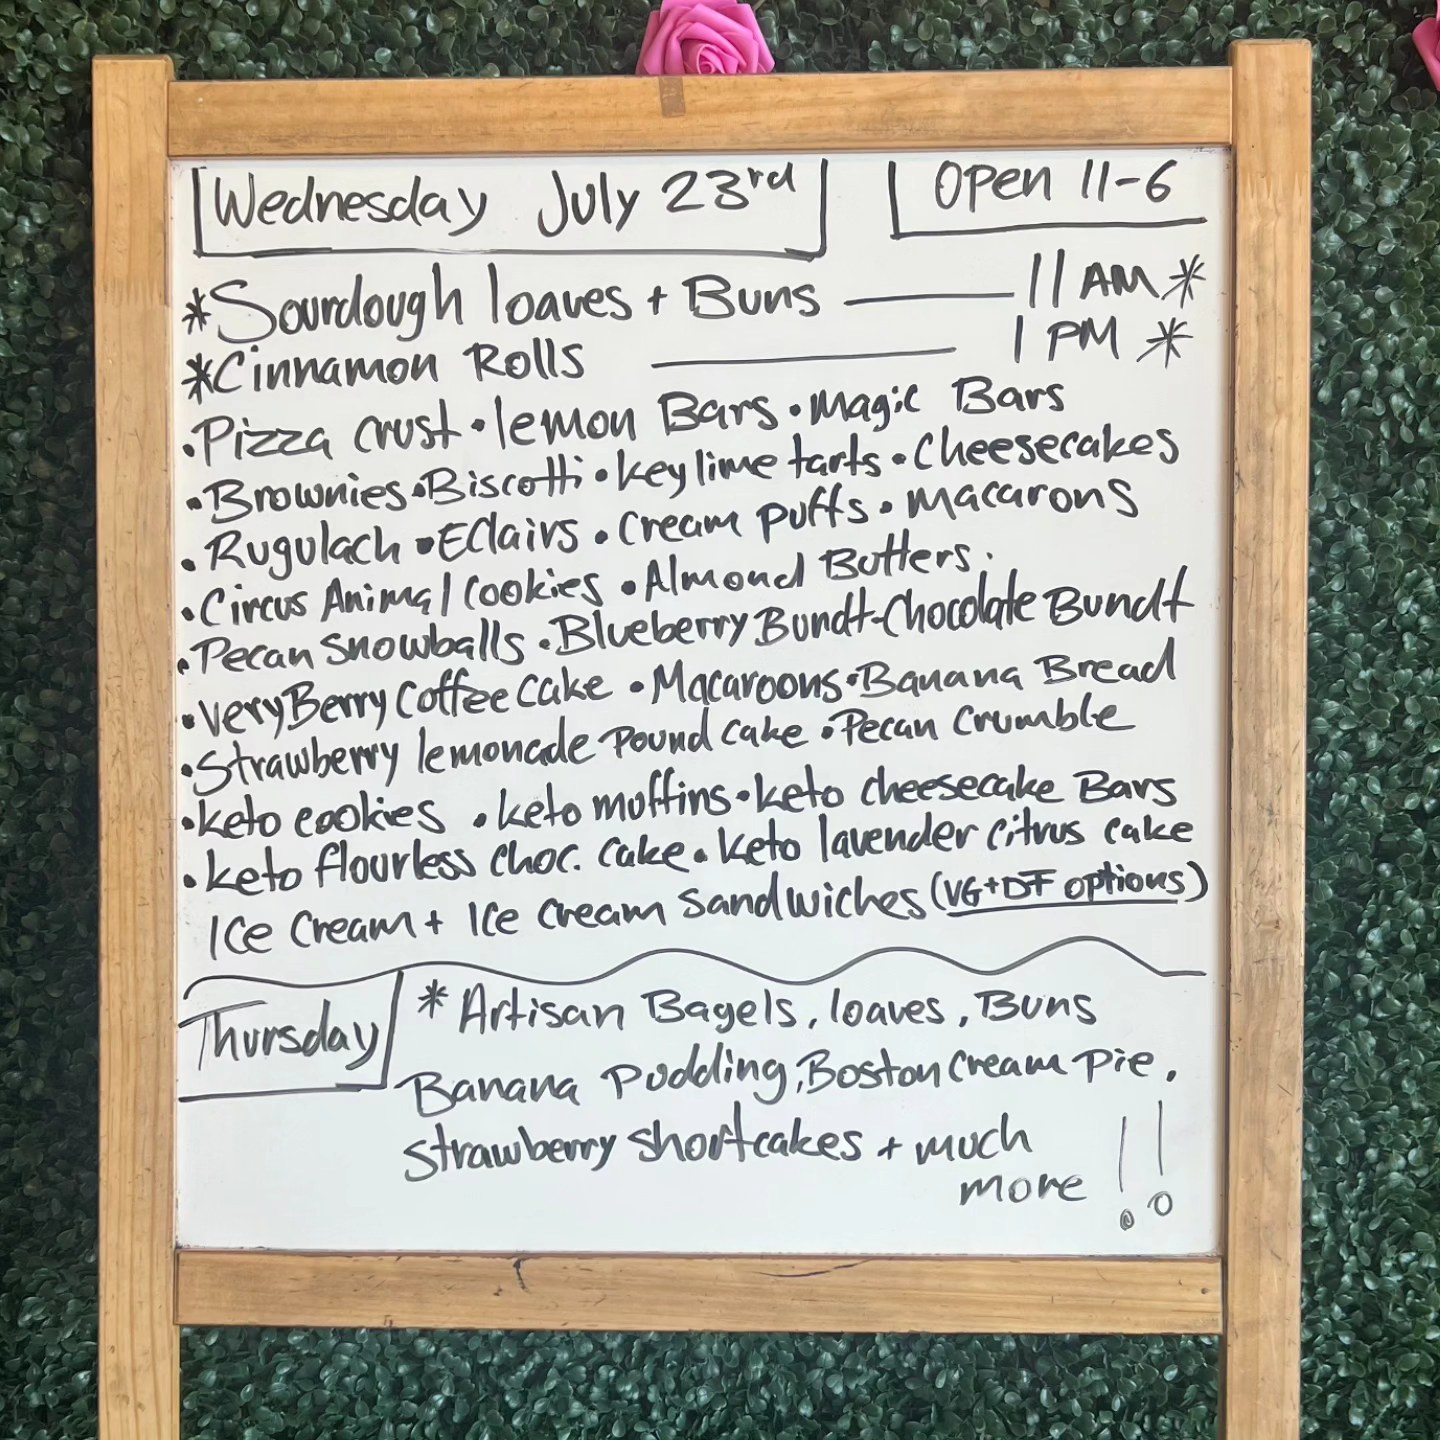 Wednesday July 23rd
Open 11-6
*Sourdough loaves + Buns — 11 AM *
*Cinnamon Rolls — 1 PM *
•Pizza crust •lemon Bars •Magic Bars
•Brownies •Biscotti •key lime tarts •Cheesecakes
•Rugulach •Eclairs •Cream puffs •Macarons
•Circus Animal Cookies •Almond Butters.
•Pecan Snowballs •Blueberry Bundt-Chocolate Bundt
•Very Berry Coffee Cake •Macaroons •Banana Bread
•Strawberry lemonade Pound Cake •Pecan Crumble
•keto cookies •keto muffins •keto cheesecake Bars
•keto flourless choc. cake •keto lavender citrus cake
Ice Cream + Ice Cream Sandwiches (VG+DF options)
Thursday
* Artisan Bagels, loaves, Buns
Banana Pudding, Boston Cream Pie,
Strawberry Shortcakes + much
more !!